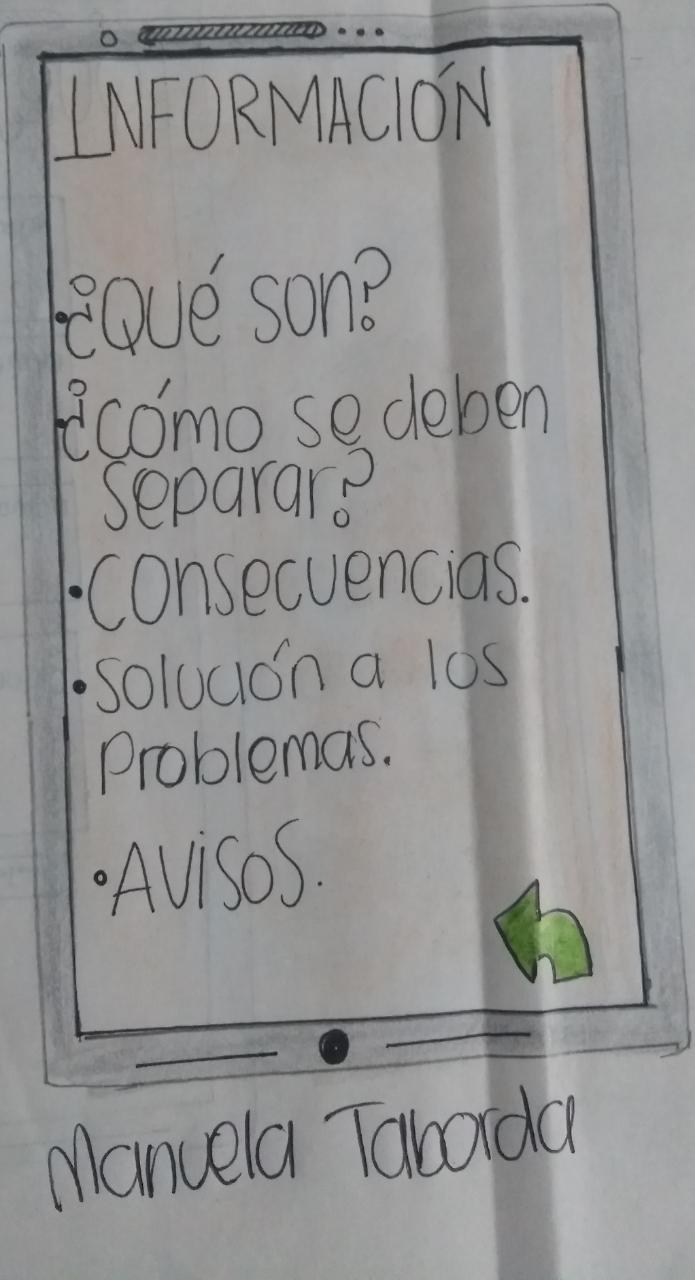 INFORMACIÓN
¿Qué son?
¿cómo se deben
separar?
•Consecuencias.
•Solución a los
problemas.
•AVisos.
Manuela Taborda